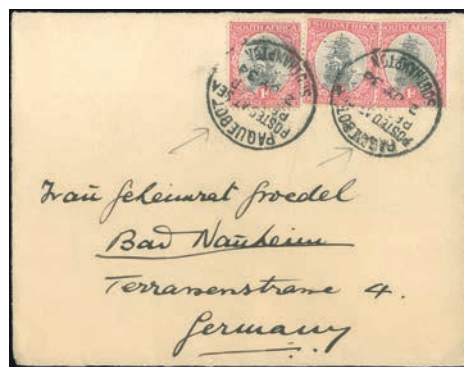 SOUTH AFRICA SUIDAFRIKA SOUTH AFRICA
PAQUEBOT
POSTED AT SEA
SOUTHAMPTON
PAQUEBOT
POSTED AT
SOUTHAMPTON
Frau Geheimrat Groedel
Bad Nauheim
Terrassenstrasse 4.
Germany